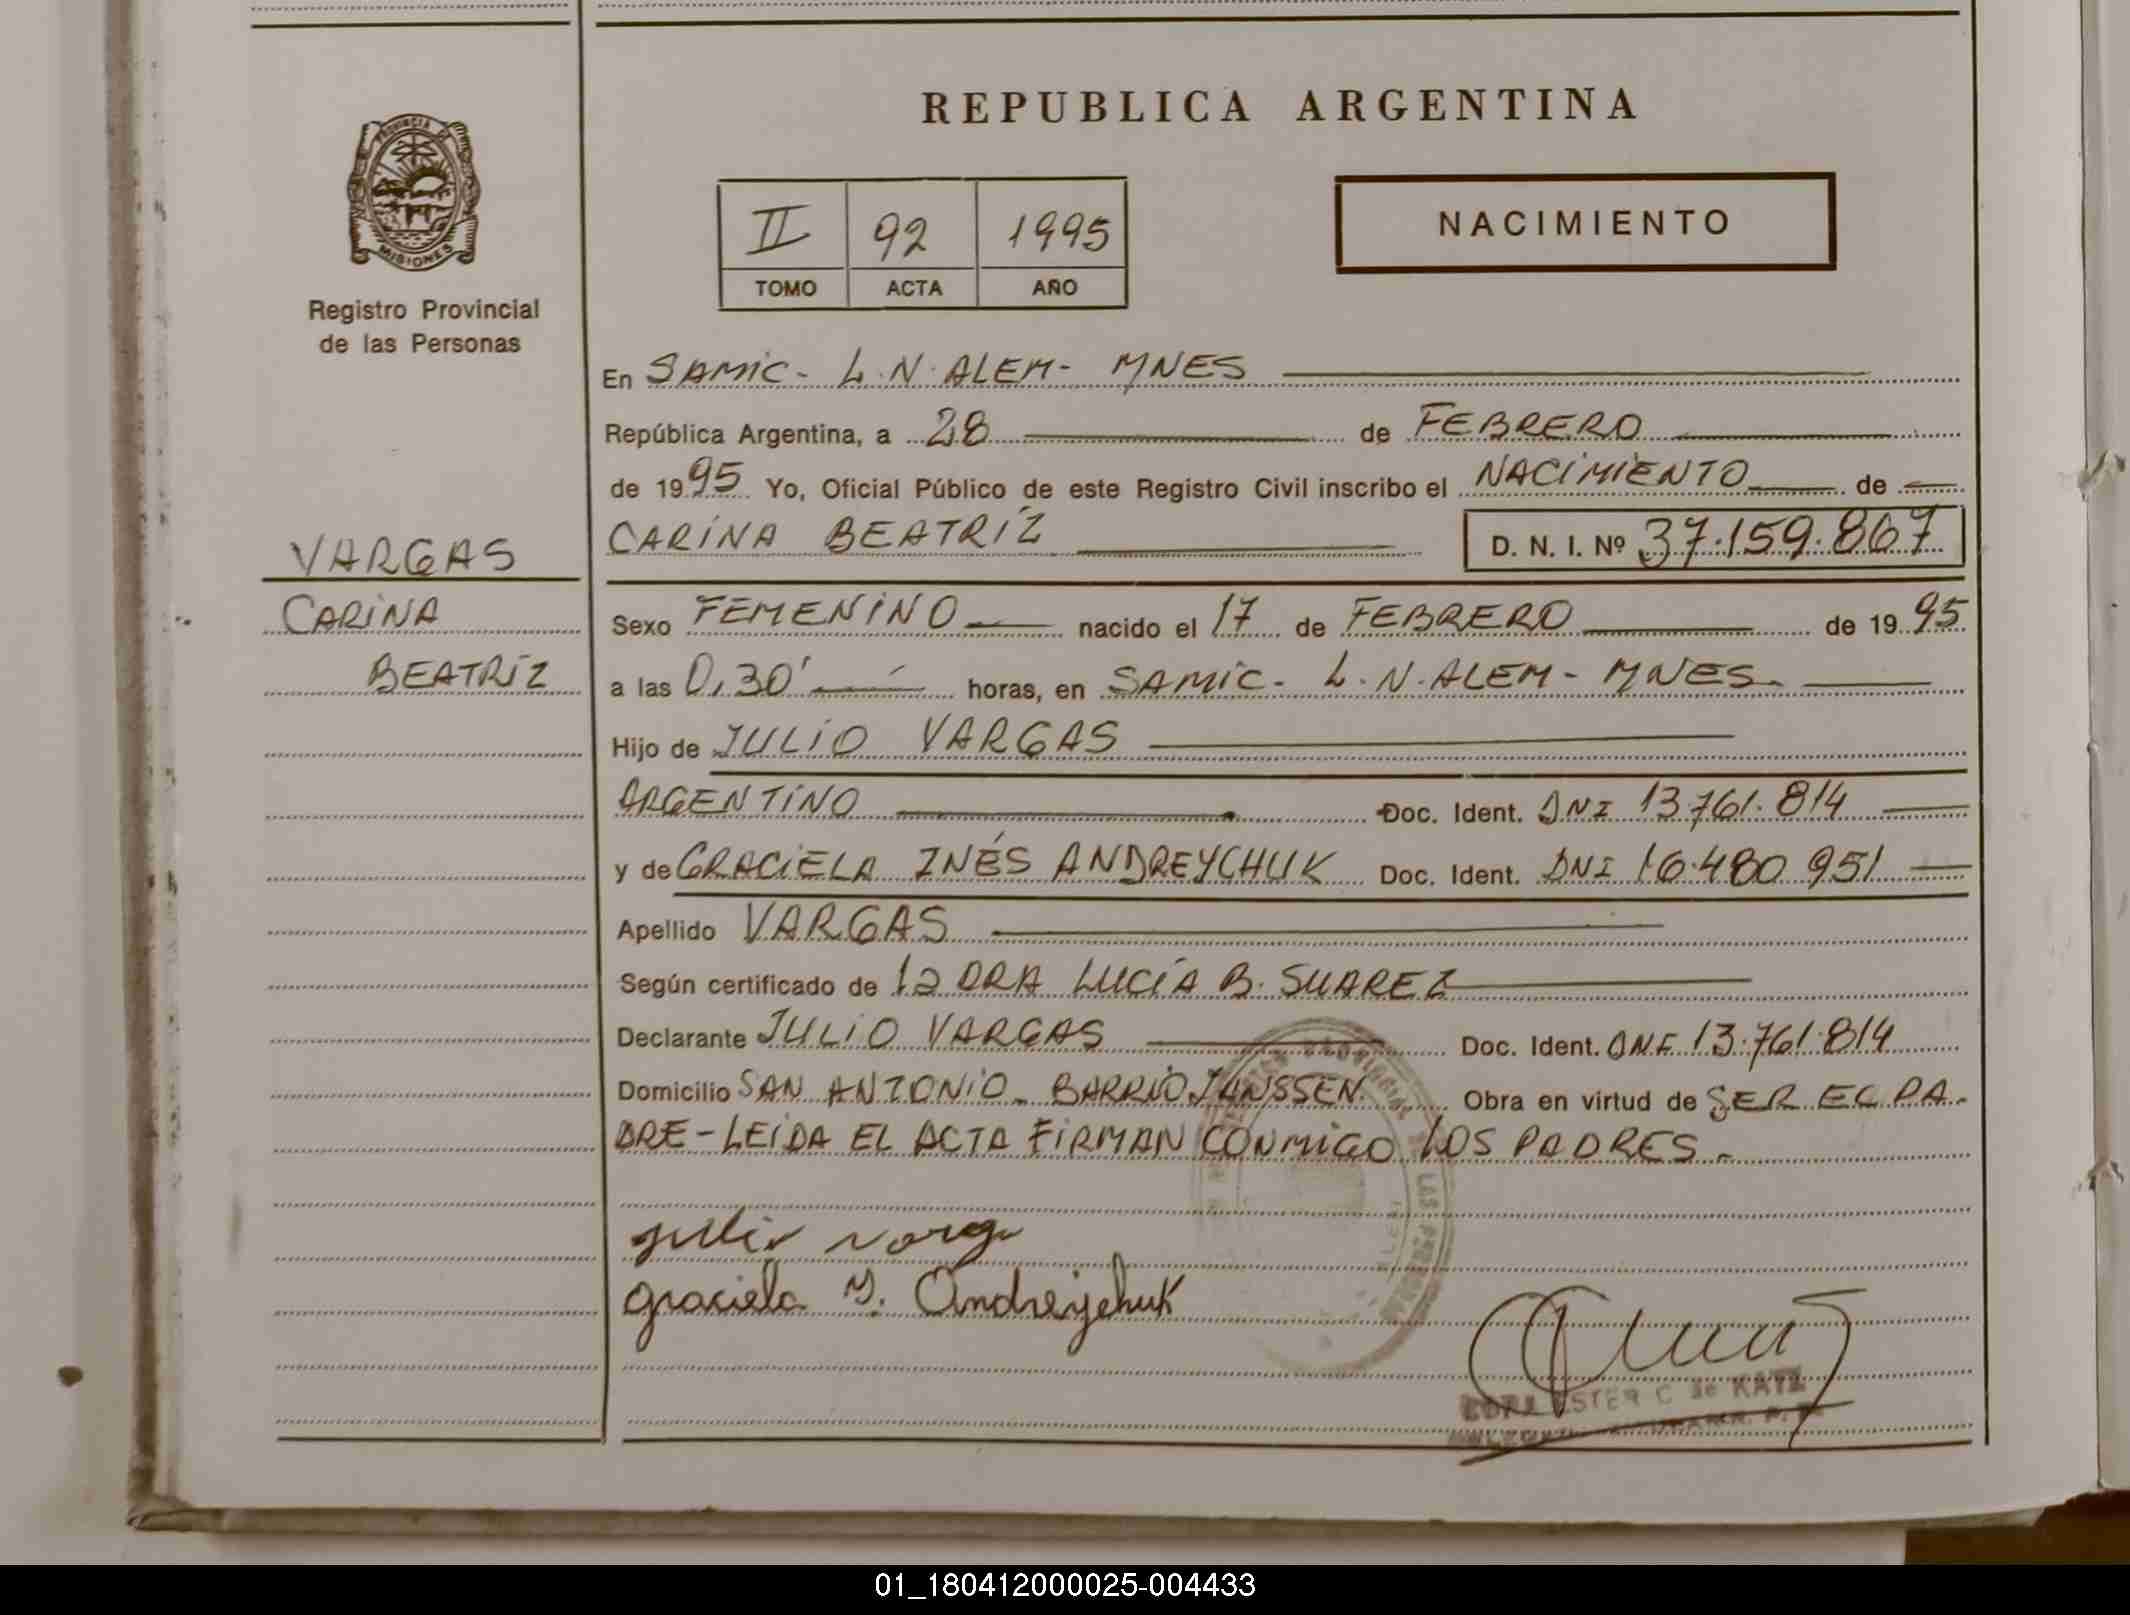 REPUBLICA ARGENTINA
PROVINCIA DE
MISIONES
Registro Provincial
de las Personas
II 92 1995
TOMO ACTA AÑO
NACIMIENTO
En SAMIC - L.N. ALEM - MNES
República Argentina, a 28 de FEBRERO
de 1995 Yo, Oficial Público de este Registro Civil inscribo el NACIMIENTO de
CARINA BEATRIZ D. N. I. Nº 37.159.867
VARGAS
CARINA
BEATRIZ
Sexo FEMENINO nacido el 17 de FEBRERO de 1995
a las 0,30' horas, en SAMIC - L.N. ALEM - MNES.
Hijo de JULIO VARGAS
ARGENTINO Doc. Ident. DNI 13.761.814
y de GRACIELA INÉS ANDREYCHUK Doc. Ident. DNI 16.480.951
Apellido VARGAS
Según certificado de la DRA LUCÍA B. SUAREZ
Declarante JULIO VARGAS Doc. Ident. DNI 13.761.814
Domicilio SAN ANTONIO - BARRIO JANSSEN. Obra en virtud de SER EL PA-
DRE - LEIDA EL ACTA FIRMAN CONMIGO LOS PADRES.-
julio varga
graciela I. Andreychuk
C de KATZ
01_180412000025-004433